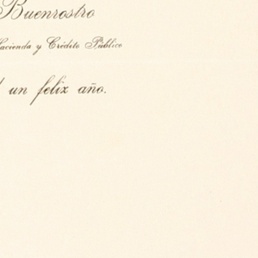 Buenrostro
Hacienda y Crédito Público
un feliz año.